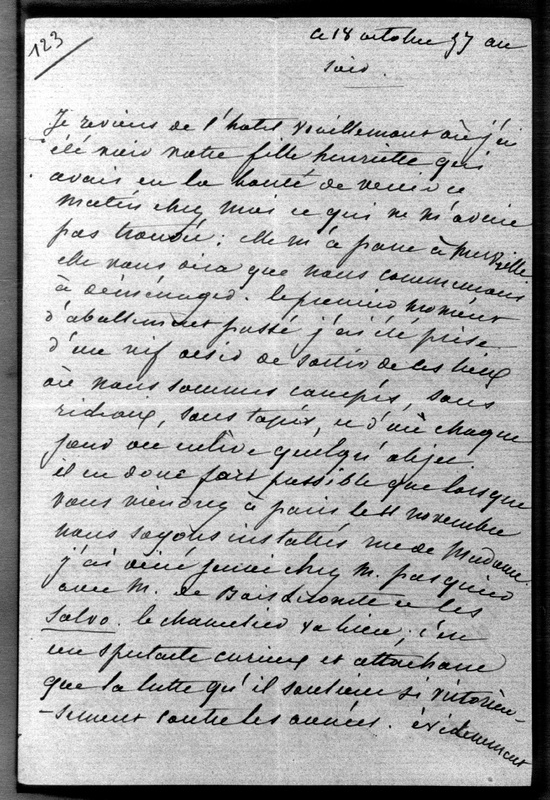 123
ce 18 octobre 57 au
soir.
Je reviens de l'hotel Vouillemont où j'ai
été voir votre fille henriette qui
avait eu la bonté de venir ce
matin chez moi ce qui ne m'avait
pas trouvée ; elle m'a paru à merveille
elle vous dira que nous commençons
à déménager. le premier moment
d'abattement passé j'ai été prise
d'un vif désir de sortir de ces lieux
où nous sommes campés, sans
rideaux, sans tapis, et d'où chaque
jour on enlève quelqu'objet.
il est donc fort possible que lorsque
vous viendrez à paris le 11 novembre
nous soyons installés rue de Madame.
j'ai diné jeudi chez M. pasquier
avec M. de et les
Salvo. le chancelier va bien ; c'est
un spectacle curieux et attachant
que la lutte qu'il soutient si victorieu-
-sement contre les années. évidemment